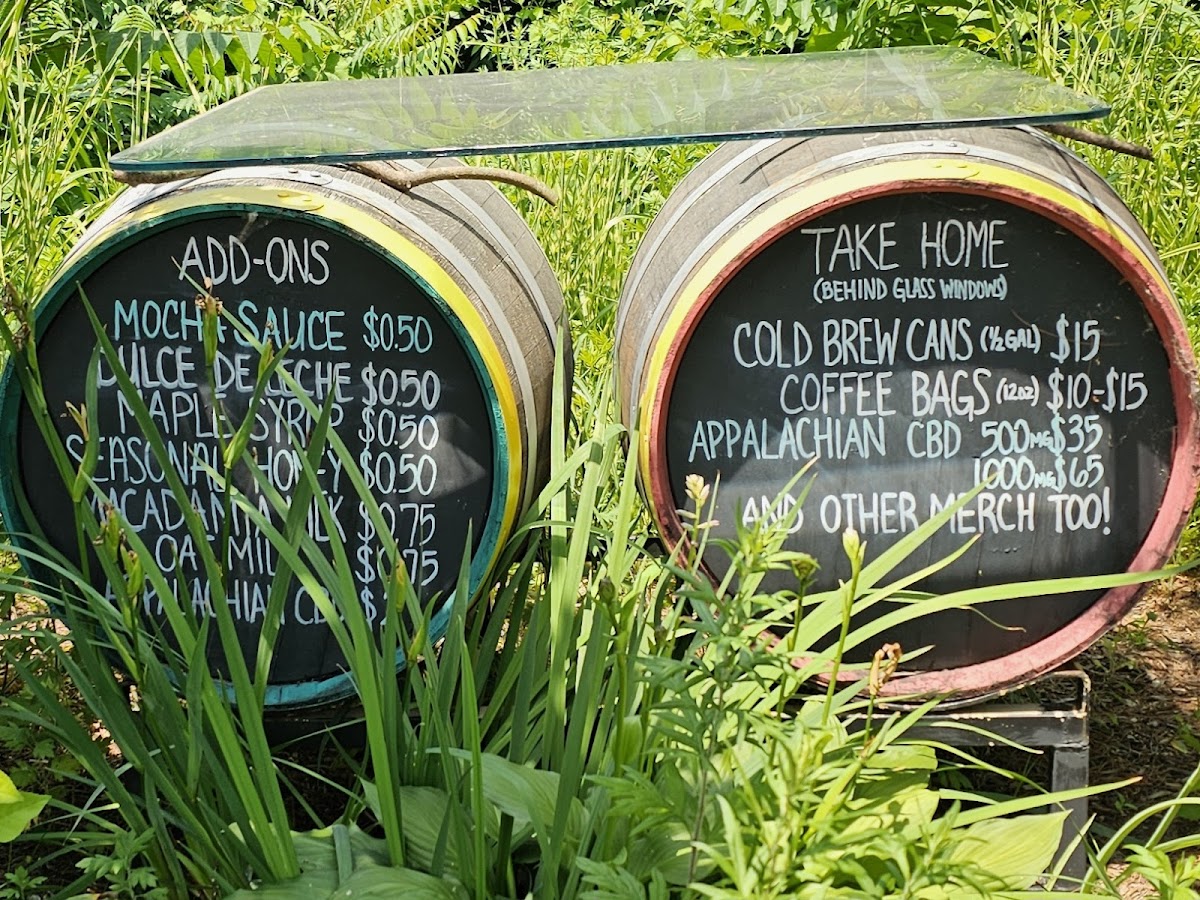 ADD-ONS
MOCHA SAUCE $0.50
DULCE DE LECHE $0.50
MAPLE SYRUP $0.50
SEASONAL HONEY $0.50
MACADAMIA MILK $0.75
OAT MILK $0.75
APPALACHIAN CBD
TAKE HOME
(BEHIND GLASS WINDOWS)
COLD BREW CANS (1/2 GAL) $15
COFFEE BAGS (12oz) $10-$15
APPALACHIAN CBD 500MG $35
1000MG $65
AND OTHER MERCH TOO!